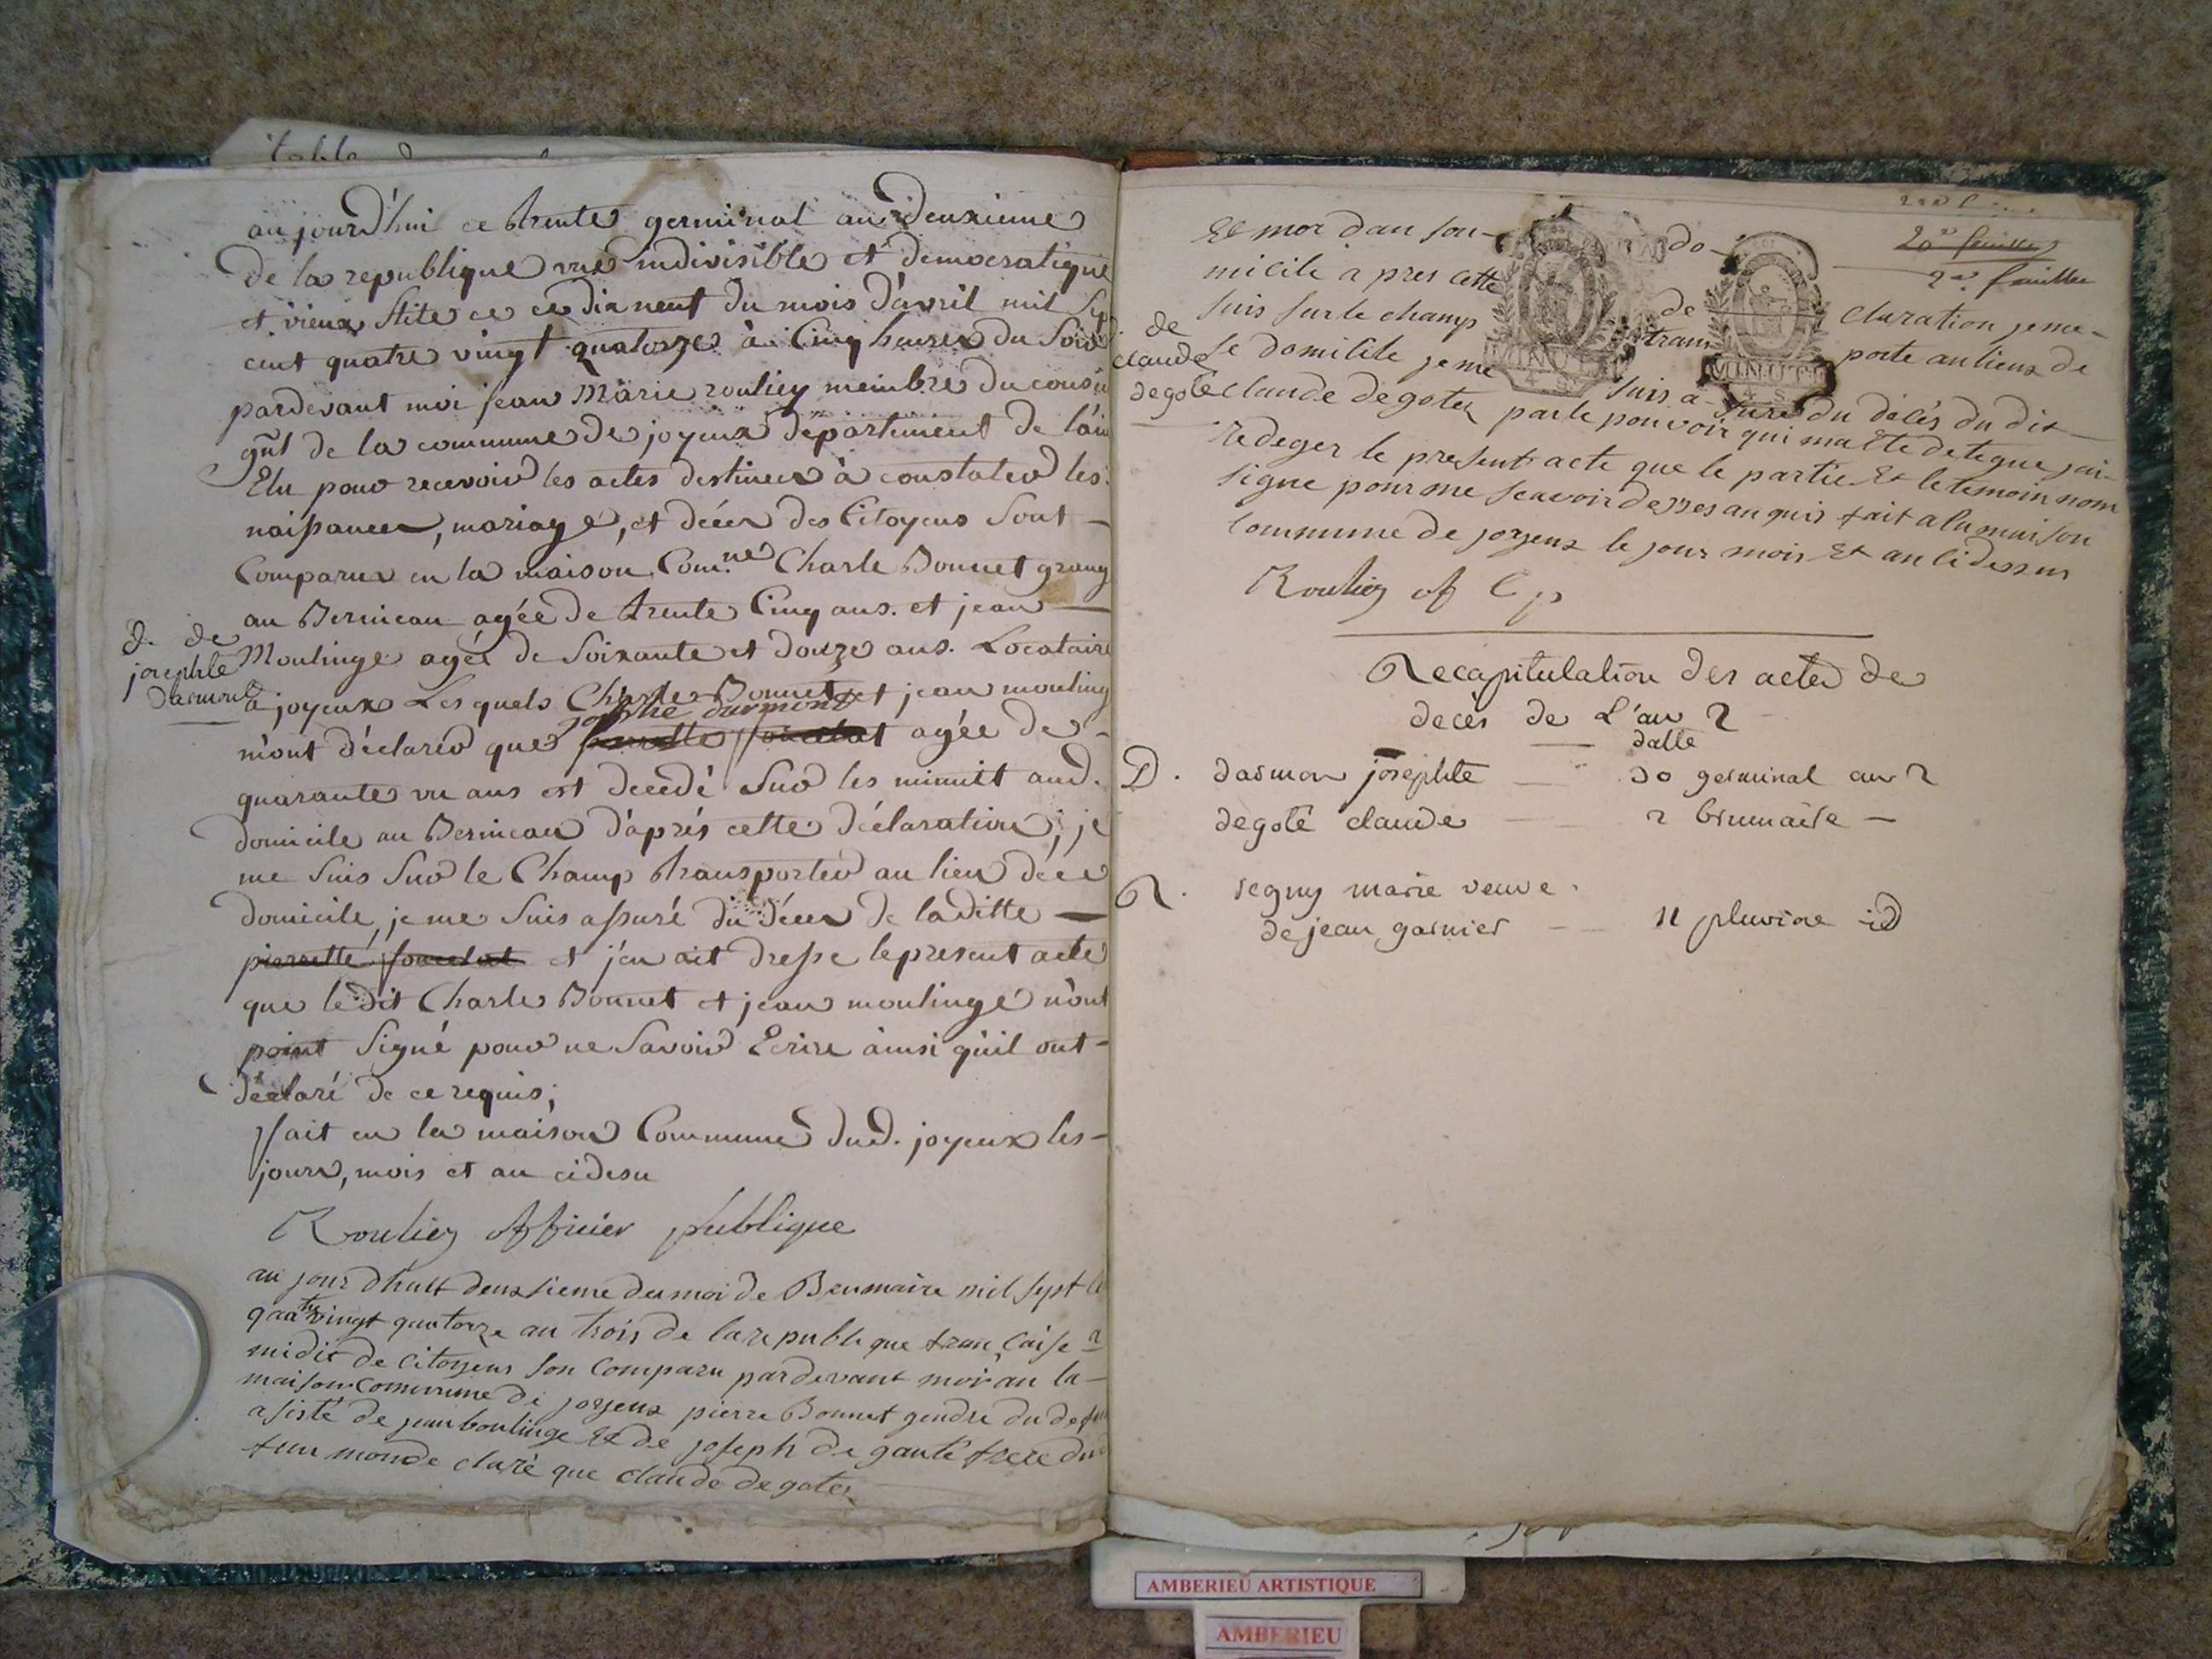 aujourd'hui ce trente germinal an deuxieme
de la republique une indivisible et democratique
et vieux stite ce ce dix neuf du mois d'avril mil sep
cent quatre vingt quatorze à Cinq heures du Soir
pardevant moi jean Marie rouliez meimbre du conseil
gñl de la commune de joyeux departement de l'ain
Elu pour recevoir les actes destinez à constater les
naissances, mariage, et décès des Citoyens Sont -
Comparus en la maison Com.ne Charle Bonnet
au Bernieau agée de trente Cinq ans. et jean —
d. de
josephte
darmont
Moulinge agée de Soixante et douze ans. Locataire
à joyeux Les quels Charle Bonnet et jean mouling
josephte darmont
m'ont déclaré que agée de -
quarante un ans est decedé Sur les minuit aud.
domicile au Bernieau d'aprés cette déclaration, je
me Suis Sur le Champ transporter au lieu de ce
domicile, je me Suis assuré du décès de laditte —
pierrette et j'en ait dressé le present acte
que le dit Charle Bonnet et jean moulingé n'ont
point Signé pour ne Savoir Ecrire àinsi qu'il ont -
déclaré de ce requis;
fait en la maison Commune dud. joyeux les -
jours, mois et an cidesu
Rouliez officier publique
au jour dhuit deuxsieme du moi de Brumaire mil sept
quatre vingt quatorze an trois de la republique francaise
midit de Citoyens son Comparu pardevant moi au la -
maison Commune de joyeux pierre Bonnet gendre du
asisté de jean boulinge Et de joseph de gauté frere du
mon de claré que claude de gotez
20e feuillet
2e feuillet
Et mor dan son - do -
micile a pres cette de claration je me -
suis sur le champ trans porte au lieux de
de
claude
degoté
se domicile je me suis a sure du décès du dit
MINUTE
4 S
MINUTE
4 S
claude degotez par le pouvoir qui ma Ete de
rediger le present acte que le partie Et le temoin nom
signe pour me scavoir de ses an quis fait a la maison
commune de joyeux le jour mois Et an ci dessus
Rouliez of C p
Recapitulation des actes de
decès de L'an 2
datte
D. darmon josephte — 30 germinal an 2
degoté claude — 2 brumaire —
segny marie veuve
de jean garnier — 11 pluviose id
AMBERIEU ARTISTIQUE
AMBERIEU